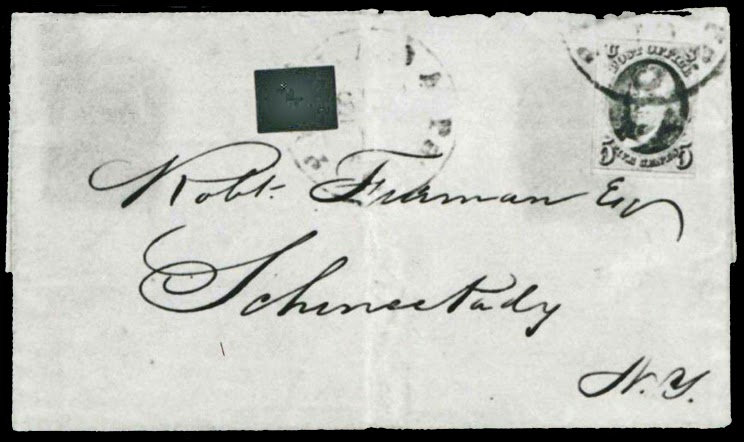 U S
POST OFFICE
5 FIVE CENTS 5
Robt. Furman Esq
Schenectady
N.Y.